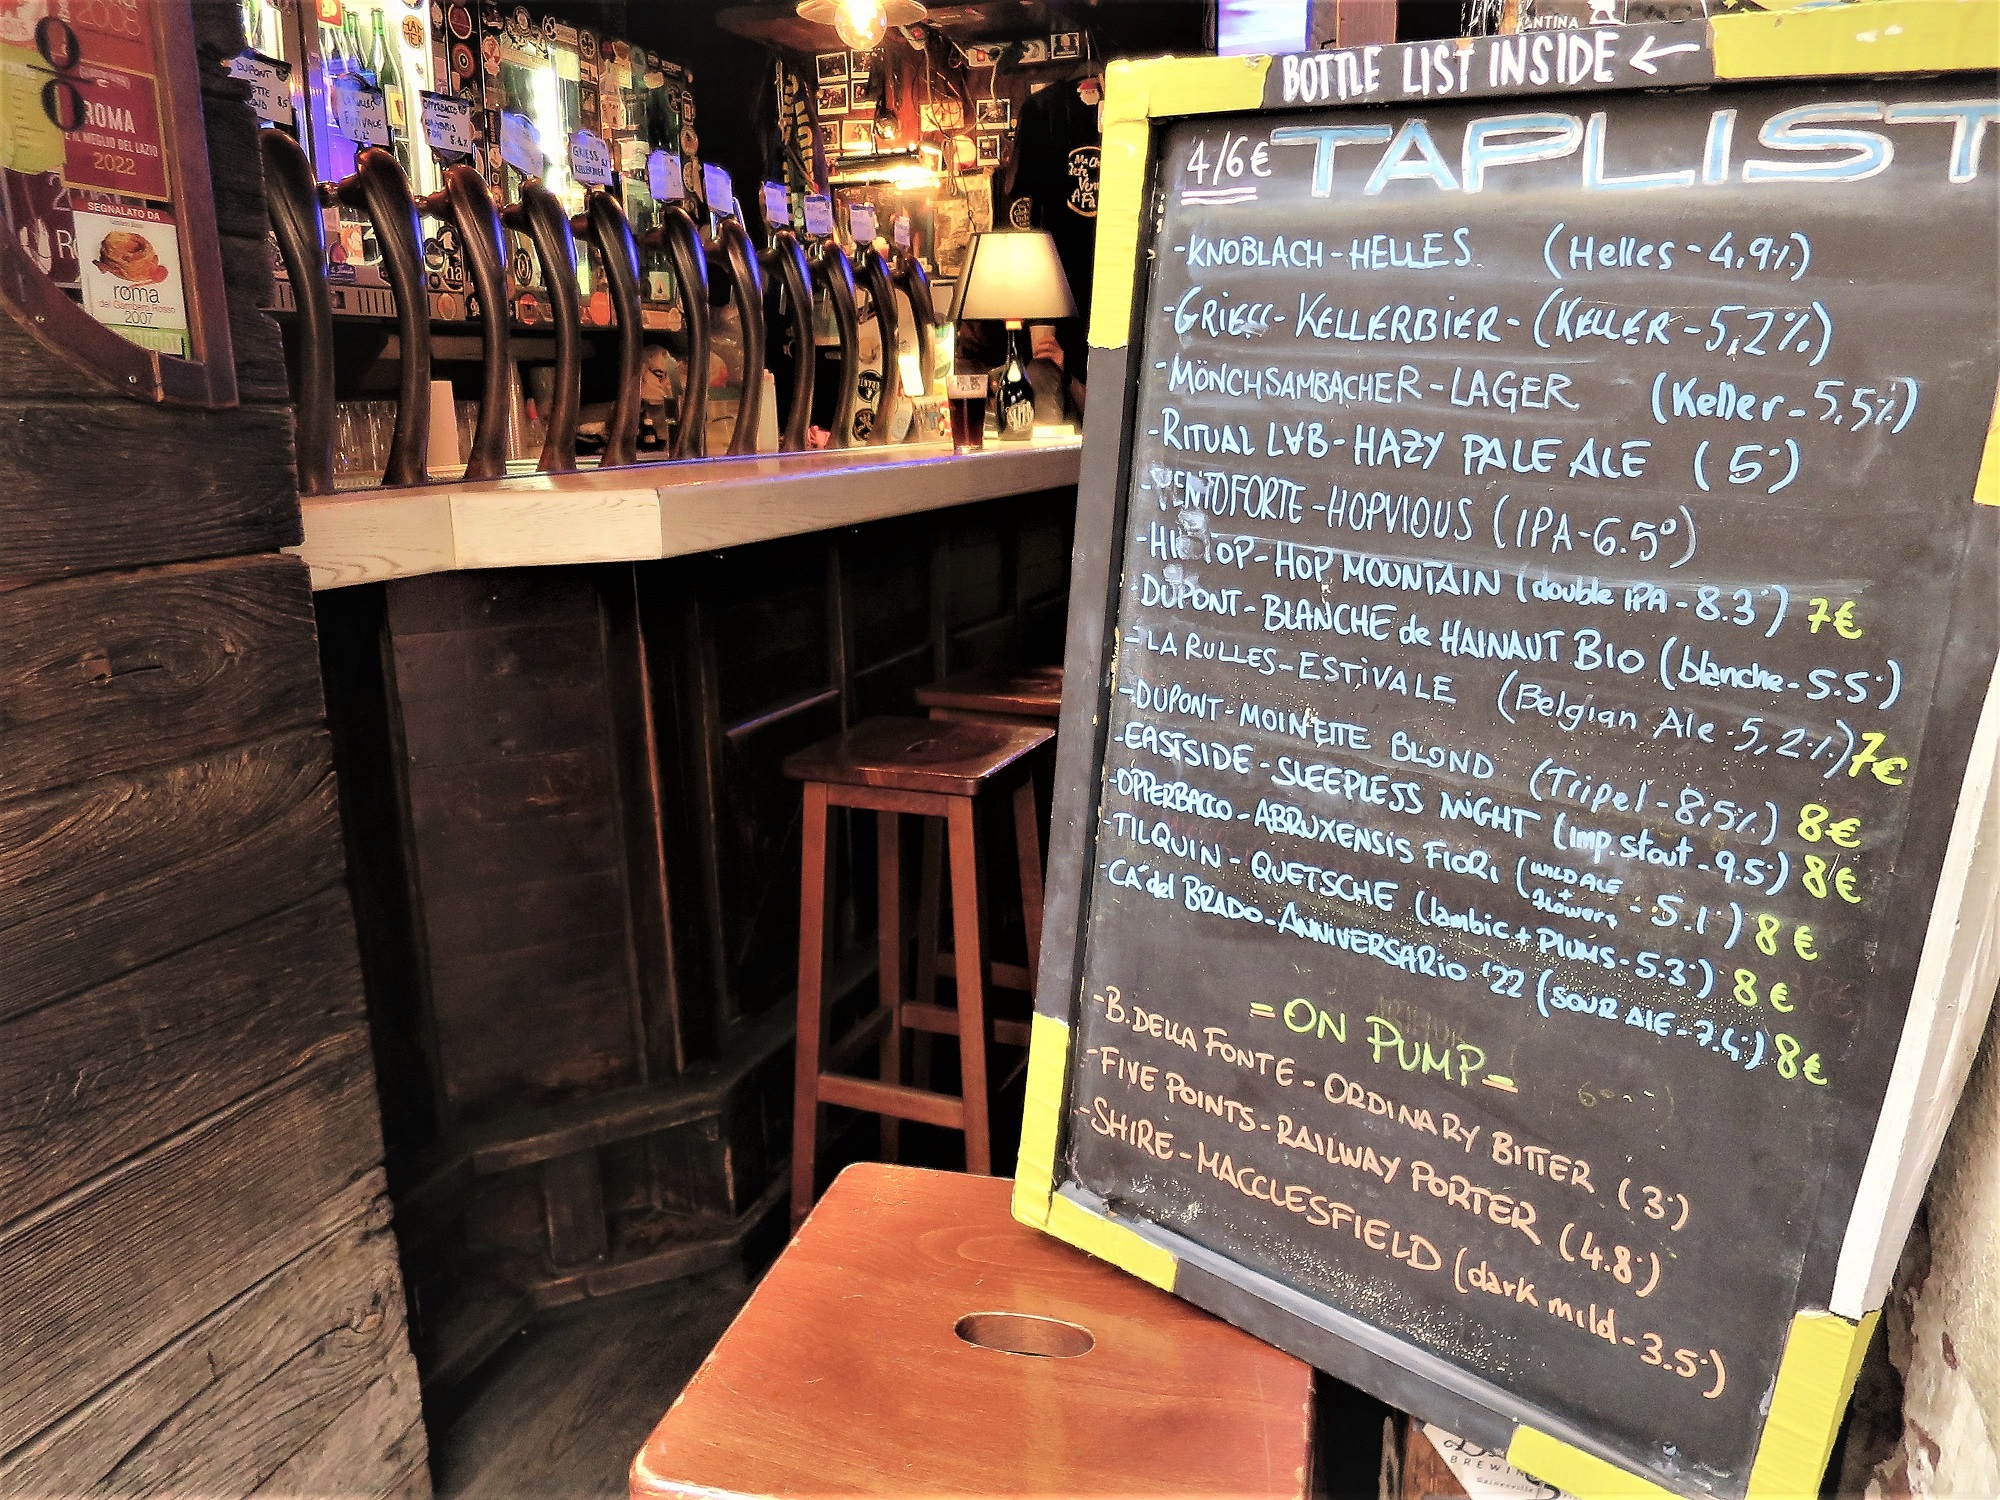 BOTTLE LIST INSIDE ←
4/6€ TAPLIST
-KNOBLACH-HELLES (Helles-4,9%)
-GRIESS-KELLERBIER-(KELLER-5,2%)
-MÖNCHSAMBACHER-LAGER (Keller-5,5%)
-RITUAL LAB-HAZY PALE ALE (5°)
-VENTOFORTE-HOPVIOUS (IPA-6.5°)
-HILLTOP-HOP MOUNTAIN (double IPA-8.3°) 7€
-DUPONT-BLANCHE de HAINAUT BIO (blanche-5.5°)
-LA RULLES-ESTIVALE (Belgian Ale-5,2%) 7€
-DUPONT-MOINETTE BLOND (Tripel-8,5%) 8€
-EASTSIDE-SLEEPLESS NIGHT (imp.stout-9.5°) 8€
-OPPERBACCO-ABRUXENSIS FIORI (WILD ALE + flowers-5.1°) 8€
-TILQUIN-QUETSCHE (lambic+PLUMS-5.3°) 8€
-CA' del BRADO-ANNIVERSARIO '22 (SOUR ALE-7.4°) 8€
=ON PUMP=
-B.DELLA FONTE-ORDINARY BITTER (3°)
-FIVE POINTS-RAILWAY PORTER (4.8°)
-SHIRE-MACCLESFIELD (dark mild-3.5°)
ROMA
E IL MEGLIO DEL LAZIO
2022
SEGNALATO DA
roma
del Gambero Rosso
2007
DUPONT
ESTIVALE
5,2°
GRIESS
KELLERBIER
BREWING